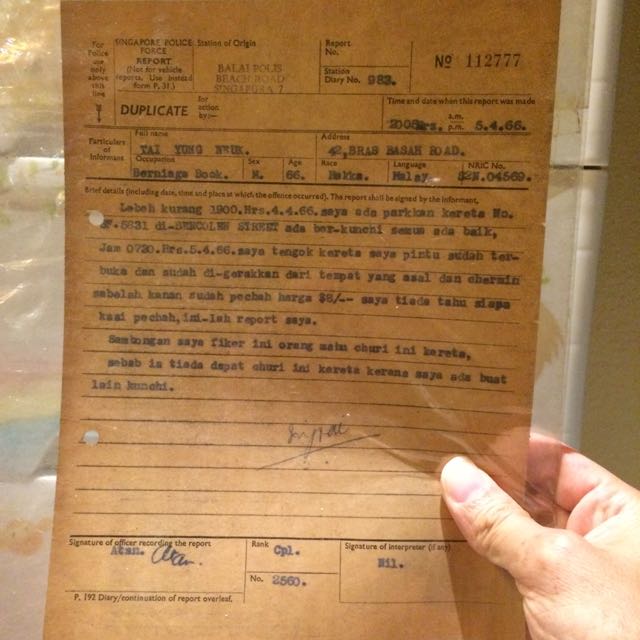 For Police use only above this line
SINGAPORE POLICE FORCE
REPORT
(Not for vehicle reports. Use instead form P. 31.)
Station of Origin
BALAI POLIS
BEACH ROAD
SINGAPURA 7
Report No.
Station Diary No. 983.
No 112777
DUPLICATE
for action by:—
Time and date when this report was made
2005Hrs. a.m. p.m. 5.4.66.
Particulars of Informant
Full name
TAI YONG
Address
42, BRAS BASAH ROAD.
Occupation
Book.
Sex
M.
Age
66.
Race
Hakka.
Language
Malay.
NRIC No.
S2N.04569.
Brief details (including date, time and place at which the offence occurred). The report shall be signed by the informant,
Lebeh kurang 1900.Hrs.4.4.66.saya ada parkkan kereta No.
5831 di-BENCOLEN STREET ada ber-kunchi semua ada baik,
Jam 0720.Hrs.5.4.66.saya tengok kereta saya pintu sudah ter-
buka dan sudah di-gerakkan dari tempat yang asal dan chermin
sabelah kanan sudah pechah harga $8/-- saya tiada tahu siapa
kasi pechah,ini-lah report saya.
Sambongan saya fiker ini orang mahu churi ini kereta,
sebab ia tiada dapat churi ini kereta kerana saya ada buat
lain kunchi.
Signature of officer recording the report
Atan.
Rank
Cpl.
No. 2560.
Signature of interpreter (if any)
Nil.
P. 192 Diary/continuation of report overleaf.